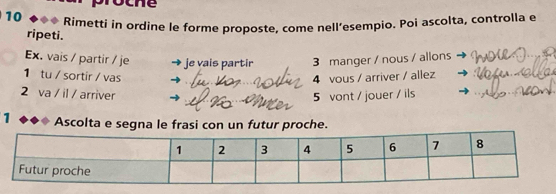 proche
10 ◆◆◆ Rimetti in ordine le forme proposte, come nell'esempio. Poi ascolta, controlla e
ripeti.
Ex. vais / partir / je → je vais partir
1 tu / sortir / vas → tu vas sortir
2 va / il / arriver → il va arriver
3 manger / nous / allons → nous
4 vous / arriver / allez → vous allez
5 vont / jouer / ils → ils vont
1 ◆◆◆ Ascolta e segna le frasi con un futur proche.
1 2 3 4 5 6 7 8
Futur proche